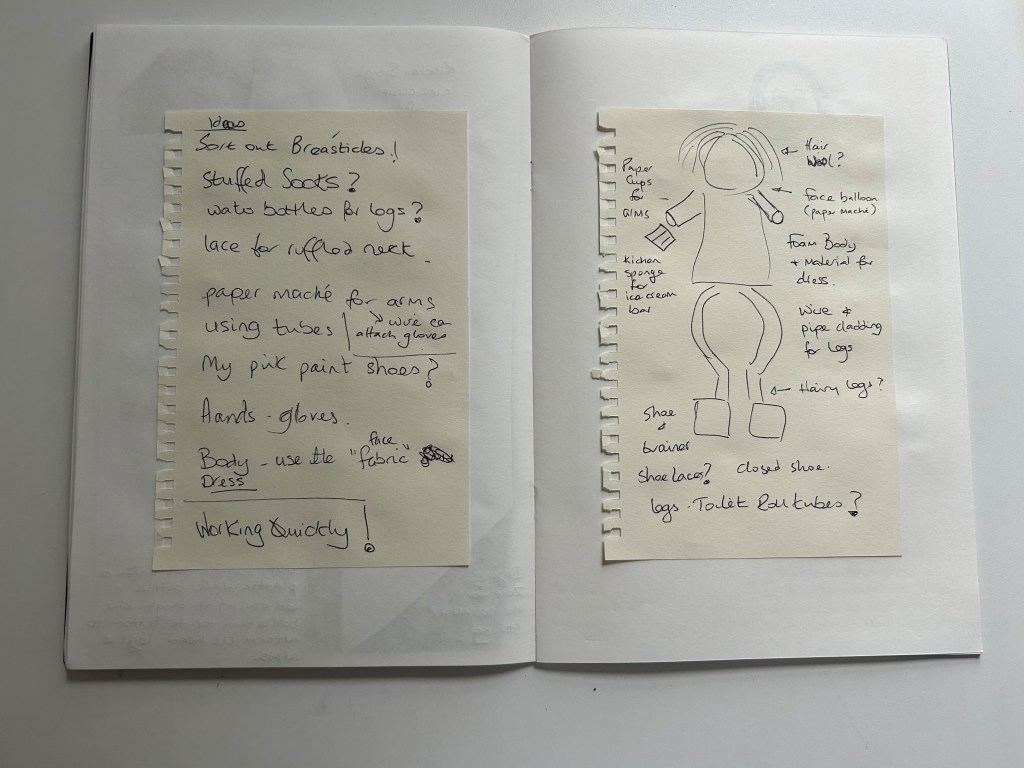 Ideas
Sort out Breasticles!
Stuffed Socks?
Wate bottles for legs?
lace for ruffled neck.
paper maché for arms
using tubes
wire can
attach gloves
My pink paint shoes?
Hands - gloves.
face
Body - use the "fabric"
Dress
Working Quickly!
Hair
Wool?
Paper
Cups
for
arms
Face balloon
(paper maché)
Foam Body
+ Material for
dress.
Kichen
sponge
for
ice cream
bar
Wire &
pipe cladding
for legs
Hairy legs?
Shoe
&
trainer
Shoe laces? closed shoe.
legs - Toilet Roll tubes?